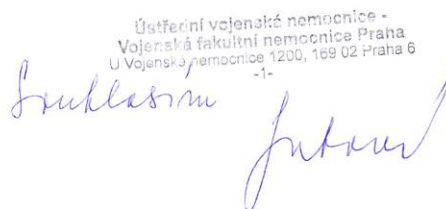 Ústřední vojenská nemocnice -
Vojenská fakultní nemocnice Praha
U Vojenské nemocnice 1200, 169 02 Praha 6
-1-
Souhlasím